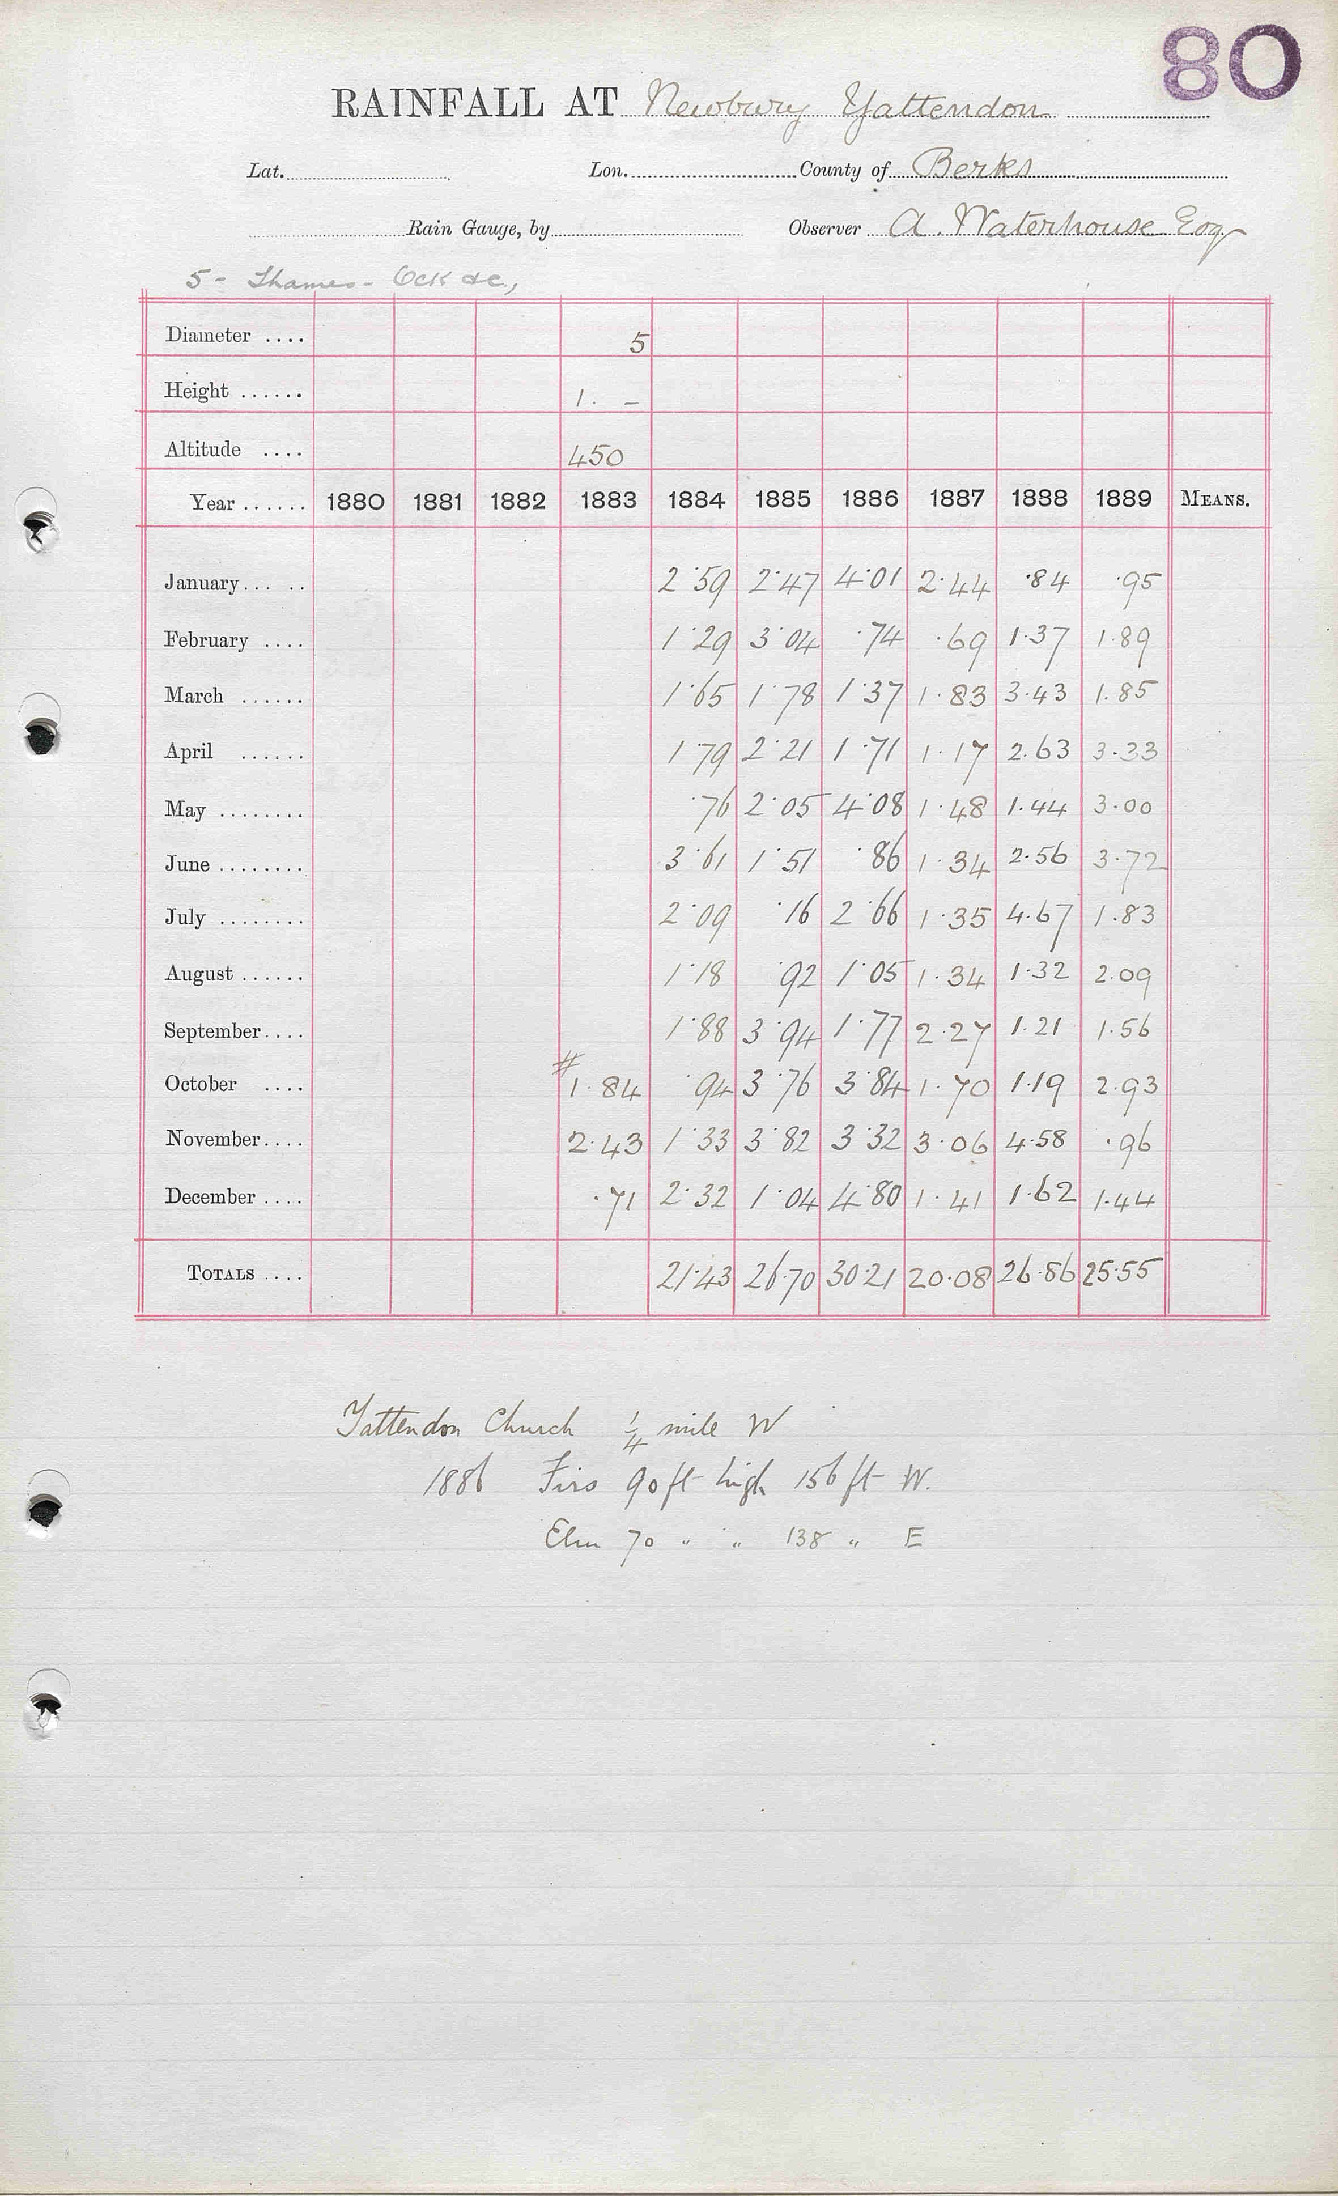 80
RAINFALL AT Newbury Yattendon
Lat. Lon. County of Berks
Rain Gauge, by Observer A. Waterhouse Esq
5 - Thames - Ock &c,
Diameter .... 5
Height ...... 1. –
Altitude .... 450
Year ...... 1880 1881 1882 1883 1884 1885 1886 1887 1888 1889 MEANS.
January... .. 2·59 2·47 4·01 2·44 ·84 ·95
February .... 1·29 3·04 ·74 ·69 1·37 1·89
March ...... 1·65 1·78 1·37 1·83 3·43 1·85
April ...... 1·79 2·21 1·71 1·17 2·63 3·33
May ........ ·76 2·05 4·08 1·48 1·44 3·00
June ........ 3·61 1·51 ·86 1·34 2·56 3·72
July ........ 2·09 ·16 2·66 1·35 4·67 1·83
August ...... 1·18 ·92 1·05 1·34 1·32 2·09
September.... 1·88 3·94 1·77 2·27 1·21 1·56
October .... #1·84 ·94 3·76 3·84 1·70 1·19 2·93
November.... 2·43 1·33 3·82 3·32 3·06 4·58 ·96
December .... ·71 2·32 1·04 4·80 1·41 1·62 1·44
TOTALS .... 21·43 26·70 30·21 20·08 26·86 25·55
Yattendon Church ¼ mile W
1886 Firs 90 ft high 156 ft W.
Elm 70 " " 138 " E